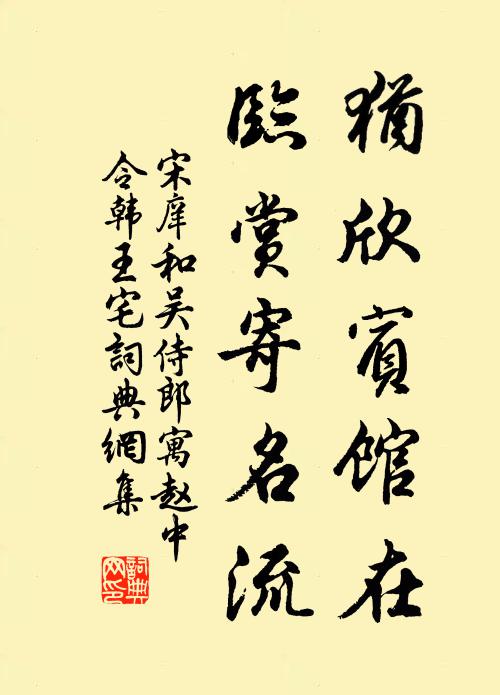 猶欣賓館在
臨賞寄名流
宋庠和吴侍郎寓赵中
令韩王宅詞典網集
詞典
网印